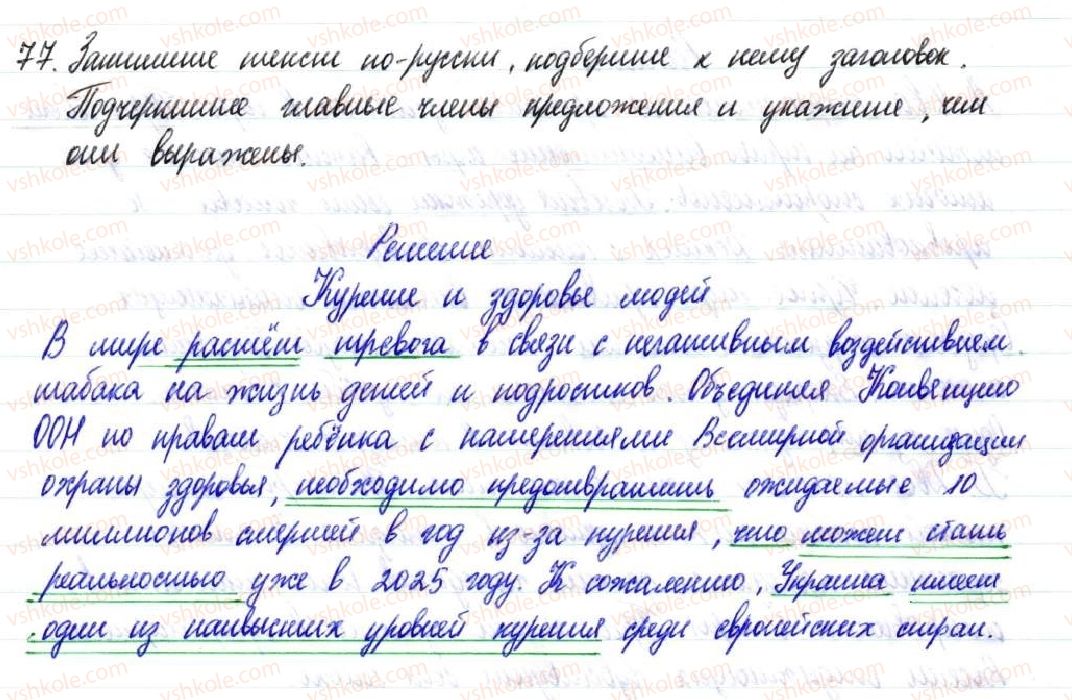 77. Запишите текст по-русски, подберите к нему заголовок.
Подчеркните главные члены предложения и укажите, чем
они выражены.
Решение
Курение и здоровье людей
В мире растёт тревога в связи с негативным воздействием
табака на жизнь детей и подростков. Объединяя Конвенцию
ООН по правам ребёнка с намерениями Всемирной организации
охраны здоровья, необходимо предотвратить ожидаемые 10
миллионов смертей в год из-за курения, что может стать
реальностью уже в 2025 году. К сожалению, Украина имеет
один из наивысших уровней курения среди европейских стран.